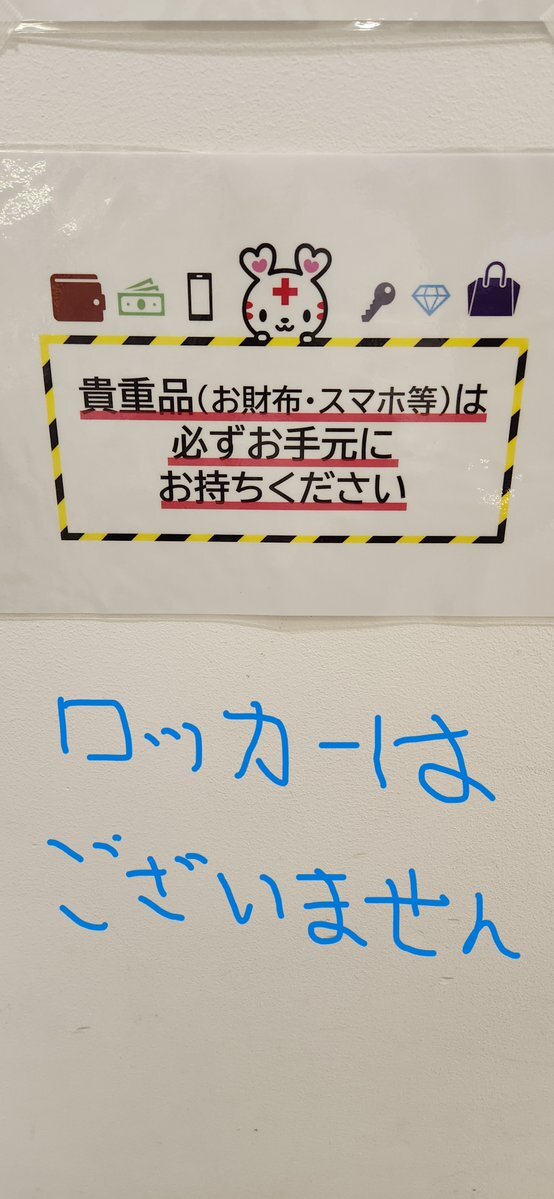 貴重品(お財布・スマホ等)は
必ずお手元に
お持ちください
ロッカーは
ございません